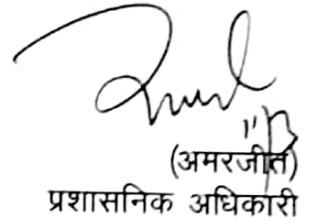 (अमरजीत)
प्रशासनिक अधिकारी